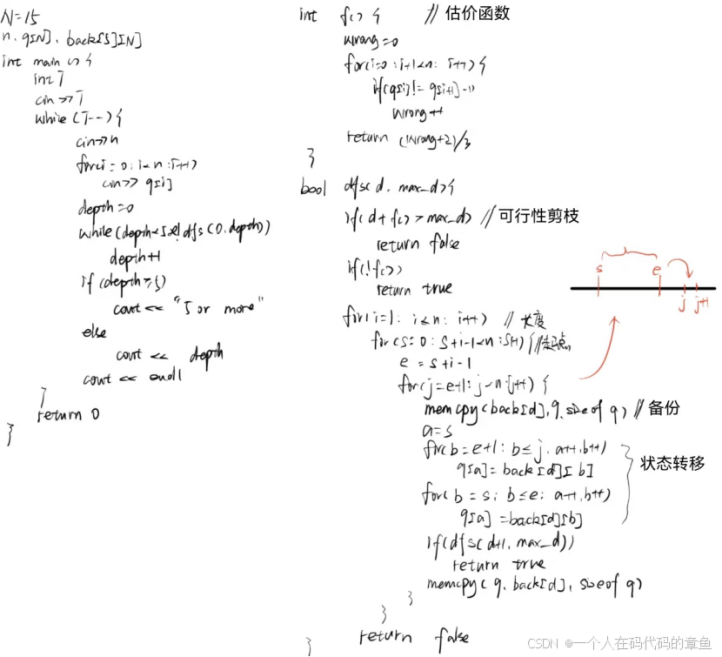 N=15
n, q[N], back[5][N]
int main() {
int T
cin>>T
while(T--){
cin>>n
for(i=0; i<n; i++)
cin>> q[i]
depth=0
while(depth<5&&!dfs(0,depth))
depth+1
if(depth>=5)
cout << "5 or more"
else
cout << depth
cout << endl
}
return 0
}
int f() { // 估价函数
wrong=0
for(i=0; i+1<n; i++){
if(q[i]!=q[i+1]-1)
wrong++
return (wrong+2)/3
}
bool dfs(d, max_d){
if(d+f()>max_d) //可行性剪枝
return false
if(!f())
return true
for(i=1; i<n; i++) // 长度
for(s=0; s+i-1<n; s++){ //起点
e=s+i-1
for(j=e+1; j<n; j++) {
memcpy(back[d],q,sizeof q) // 备份
a=s
for(b=e+1; b≤j, a++,b++)
q[a]=back[d][b]
for(b=s; b≤e; a++,b++)
q[a]=back[d][b]
状态转移
if(dfs(d+1,max_d))
return true
memcpy(q, back[d], sizeof q)
}
}
return false
}
s e j j+1
CSDN @一个人在码代码的章鱼